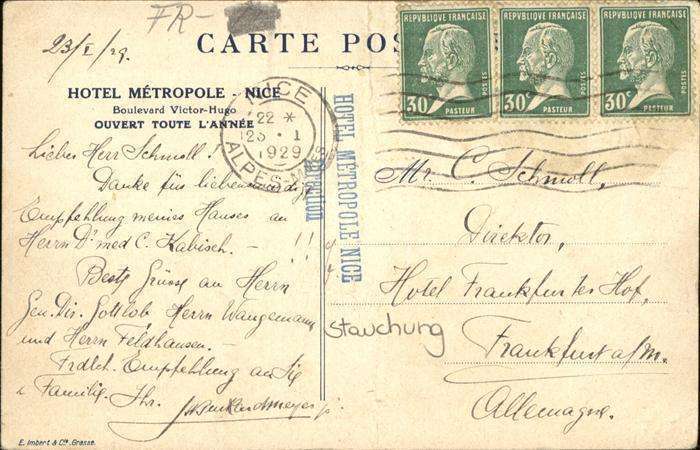 FR-
23/I/29.
CARTE POS
HOTEL MÉTROPOLE - NICE
Boulevard Victor-Hugo
OUVERT TOUTE L'ANNÉE
NICE
22 *
23 • 1
1929
ALPES-M
Lieber Herr Schmoll!
Danke für liebenswürdige
Empfehlung meines Hauses an
Herrn Dr med C. Kabisch. - !!!
Beste Grüsse an Herrn
Gen. Dir. Gottlob Herrn Wangemann
und Herrn Feldhausen. -
Frdlch. Empfehlung an Sie
& Familie. Ihr.
E. Imbert & Cie. Grasse.
HOTEL METROPOLE NICE
RÉPUBLIQUE FRANÇAISE
30c
POSTES
PASTEUR
RÉPUBLIQUE FRANÇAISE
30c
POSTES
PASTEUR
RÉPUBLIQUE FRANÇAISE
30c
POSTES
PASTEUR
Mr. C. Schmoll,
Direktor,
Hotel Frankfurter Hof,
Stauchung
Frankfurt a/m.
Allemagne.